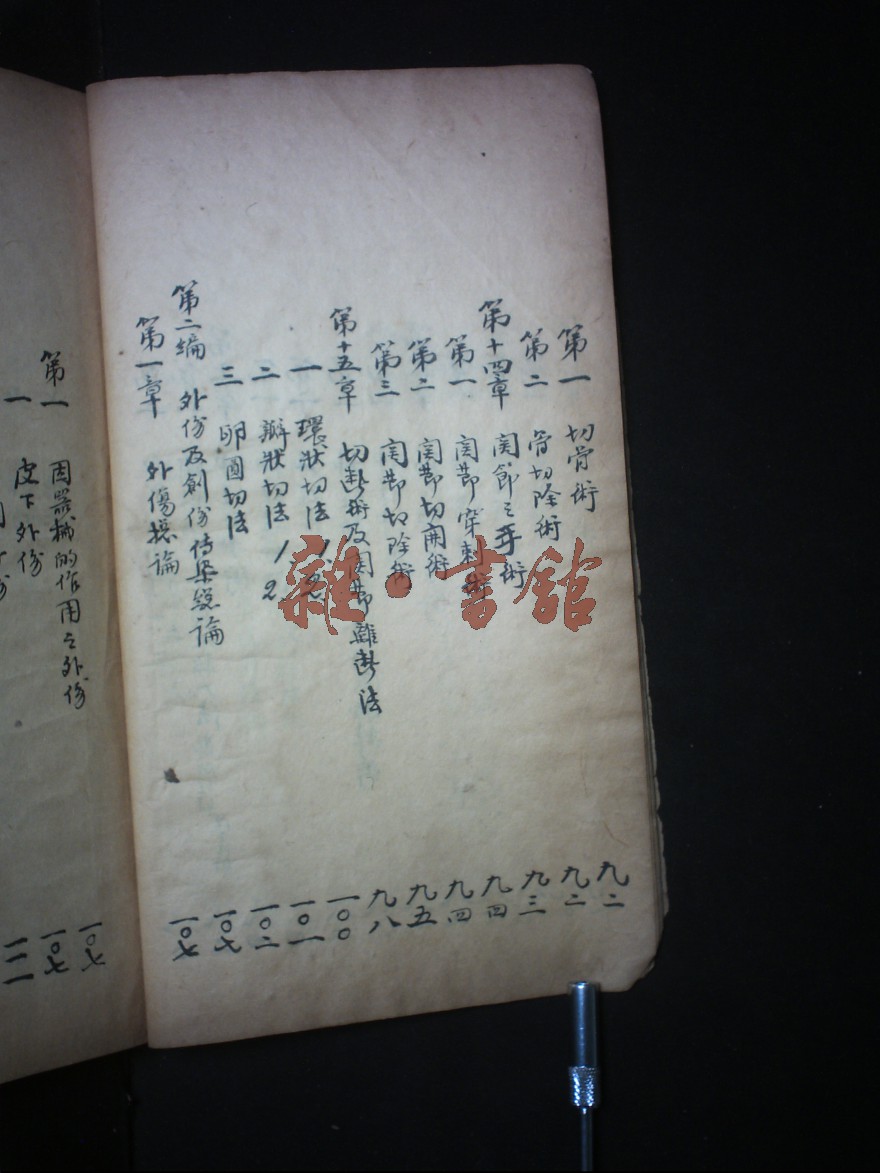 第一 切骨術 九二
第二 骨切除術 九二
第十四章 関節之手術 九三
第一 関節穿刺術 九四
第二 関節切開術 九四
第三 関節切除術 九五
第十五章 切断術及関節離断法 九八
一 環狀切法 一〇〇
二 瓣狀切法 1 2 一〇一
三 卵圓切法 一〇二
第二編 外伤及創伤傳染總論 一〇七
第一章 外傷總論 一〇七
第一 因器械的作用之外伤 一〇七
一 皮下外伤 一〇七
雜·書館